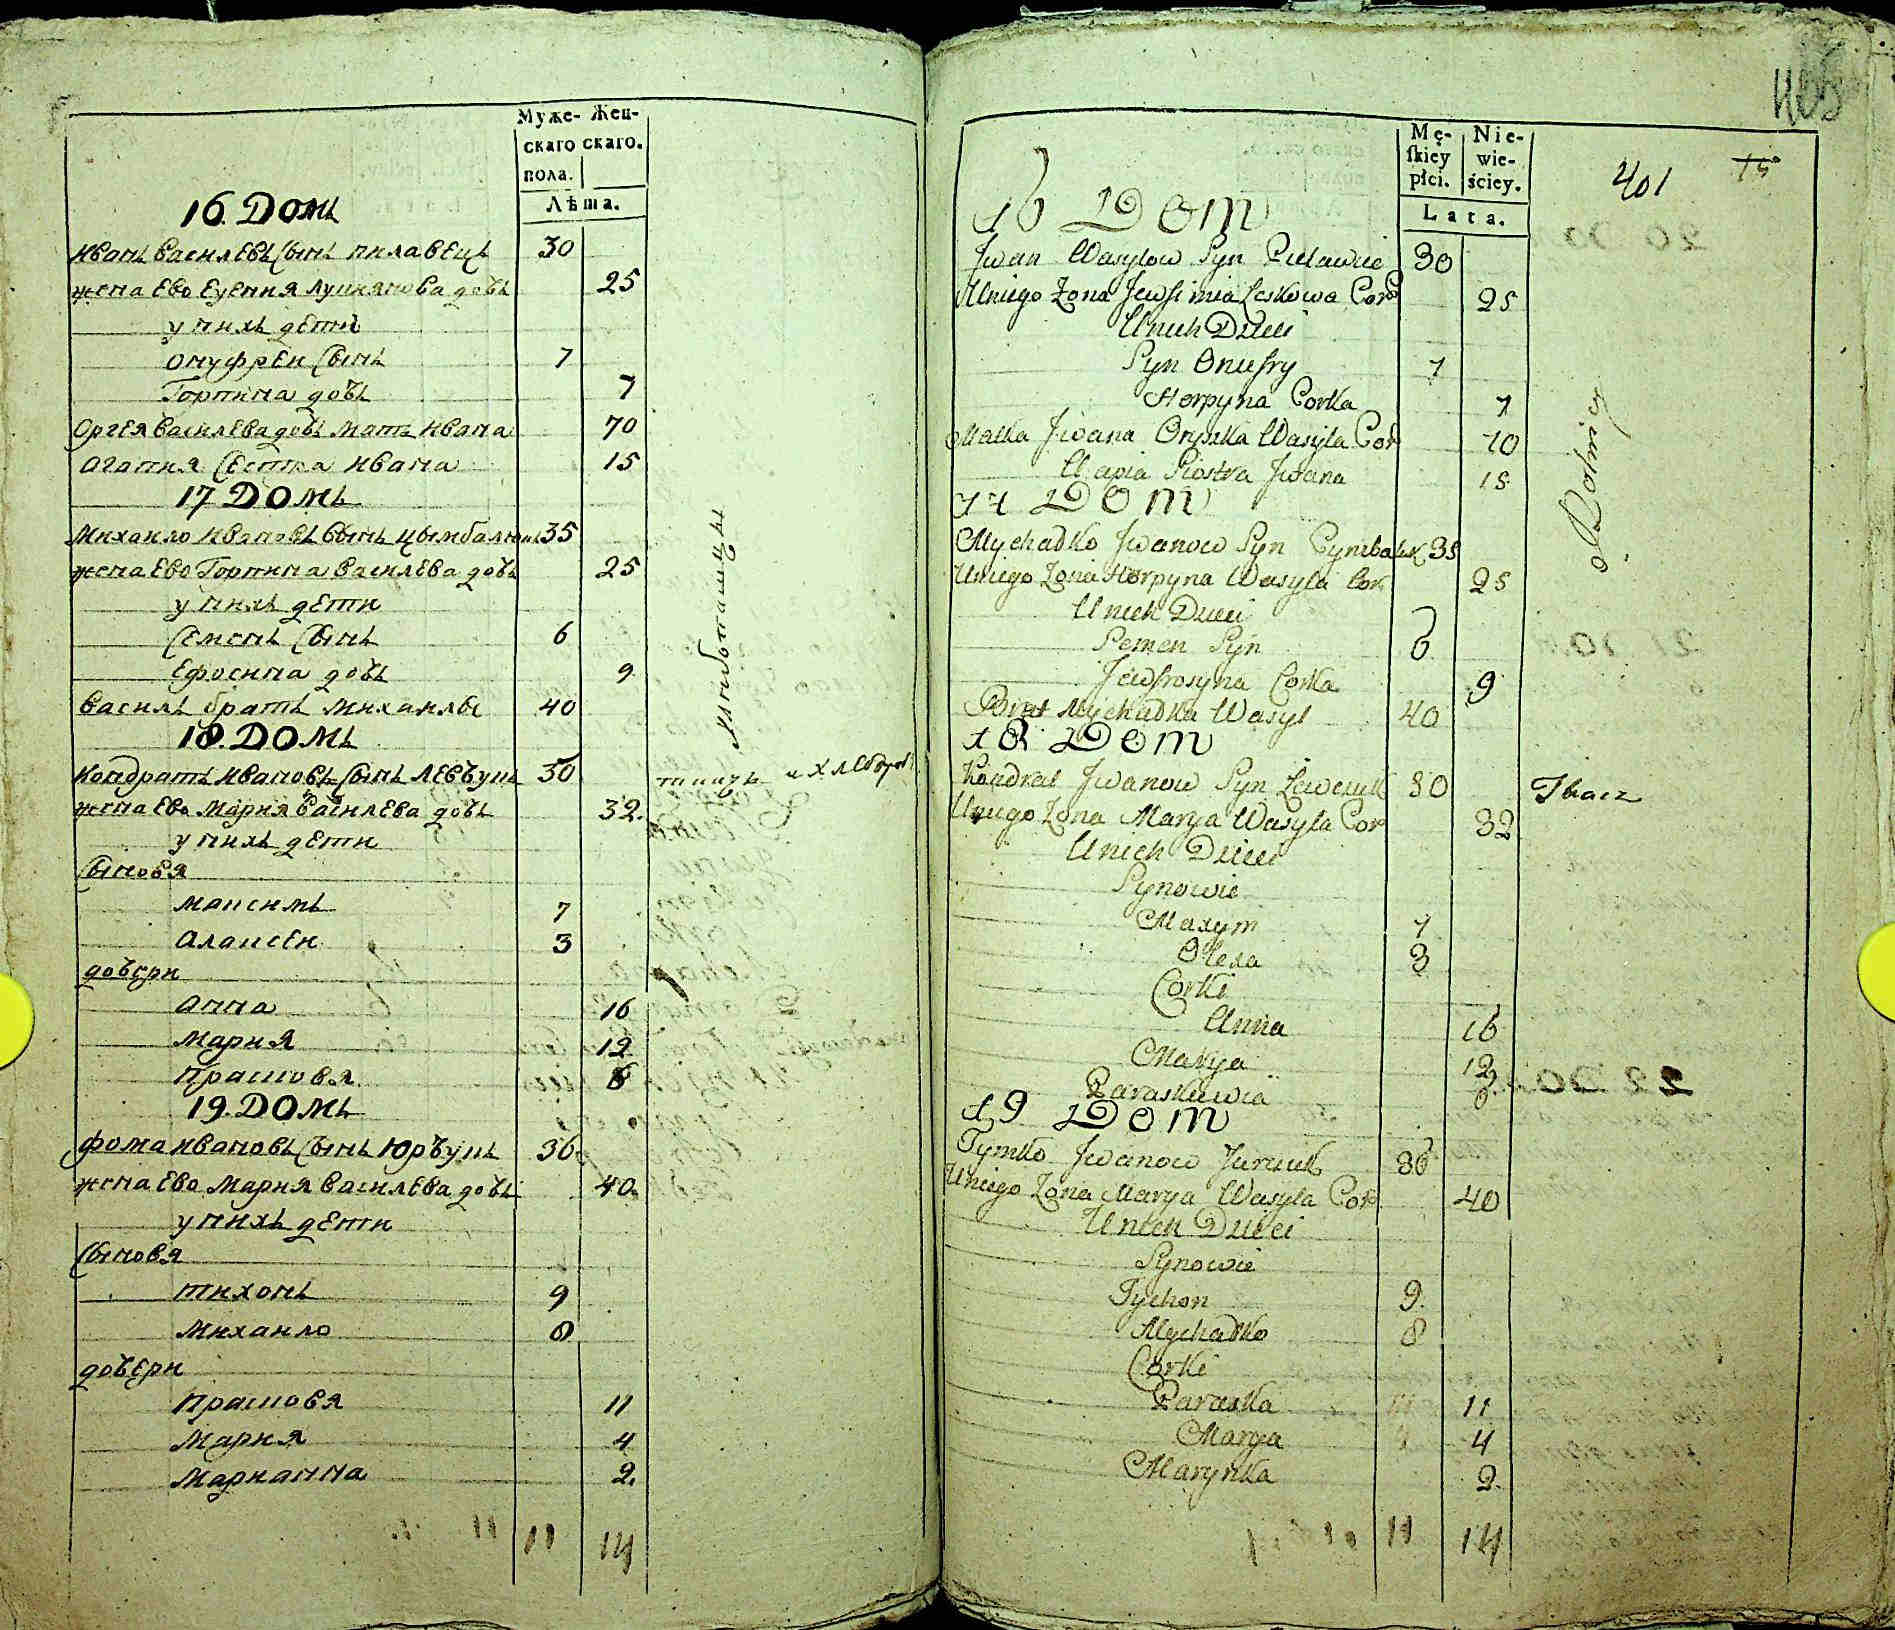 Муже- Жен-
скаго скаго.
пола.
Лѣта.
16. Домъ
Иванъ Василевъ Сынъ пилавецъ 30
жена Ево Еуения Лукянова дочь 25
у нихъ дети
Онуфреи Сынъ 7
Горпина дочь 7
Василева дочь Мать Ивана 70
Агапия Сестра Ивана 15
17 Домъ
Михаило Ивановъ Сынъ Цымбалюкъ 35
жена Ево Горпина Василева дочь 25
у нихъ дети
Семенъ Сынъ 6
Ефосина дочь 9
Василь братъ Михаилы 40
18. Домъ
Кондратъ Ивановъ Сынъ Левчукъ 30
жена Ево Мария Василева дочь 32.
у нихъ дети
Сыновя
Максимъ 7
Алексеи 3
дочери
Анна 16
Мария 12
Прасковя 6
19. Домъ
Фома Ивановъ Сынъ Юрчукъ 36.
жена Ево Мария Василева дочь 40.
у нихъ дети
Сыновя
Тихонъ 9
Михаило 8
дочери
Прасковя 11
Мария 4
Марианна 2.
11 14
хлебопашцы
ткачъ и хлебороб
405
401 15
Mę- Nie-
skiey wie-
płci. ściey.
Lata.
16 Dom
Jwan Wasylow Syn Pielawiec 30
Uniego Żona Jewfimia Leskowa Cor 25
Unich Dzieci
Syn Onufry 7
Horpyna Corka 7
Matka Jwana Oryszka Wasyla Cor 70
Siostra Jwana 15
17 Dom
Mychadko Jwanow Syn Cymbaluk 35
Uniego Żona Horpyna Wasyla Cor. 25
Unich Dzieci
Semen Syn 6
Jewfrosyna Corka 9
Brat Mychadka Wasyl 40
18 Dom
Kondrat Jwanow Syn Lewczuk 30
Uniego Żona Marya Wasyla Cor 32
Unich Dzieci
Synowie
Maxym 7
Olexa 3
Corki
Anna 16
Marya 12
Paraskiewia 6.
19 Dom
Tymko Jwanow Jurczuk 36
Uniego Żona Marya Wasyla Cor 40
Unich Dzieci
Synowie
Tychon 9.
Mychadko 8
Corki
Paraska 11
Marya 4
Marynka 2.
11 14
Rolnicy
Tkacz